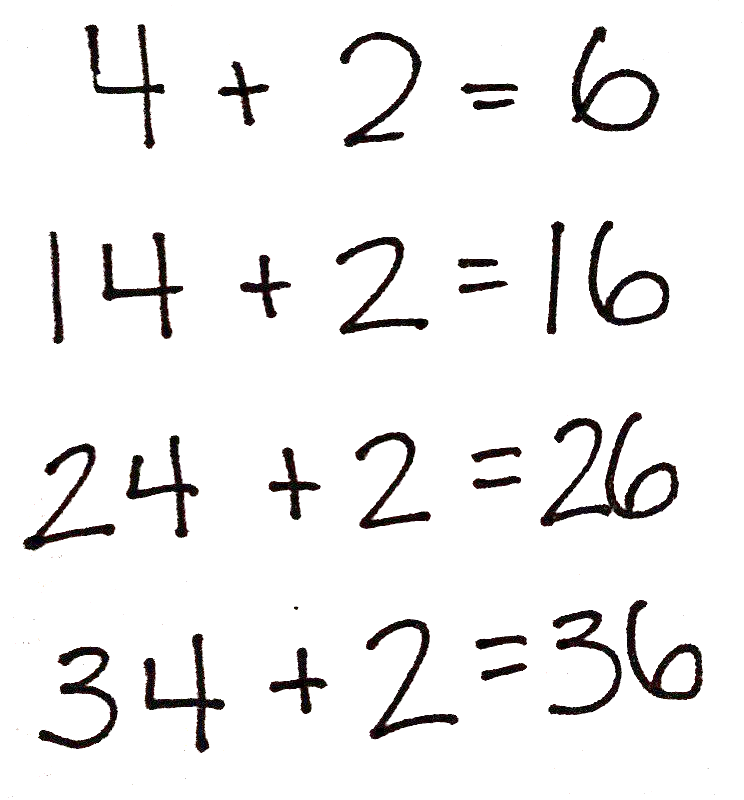 4 + 2 = 6
14 + 2 = 16
24 + 2 = 26
34 + 2 = 36